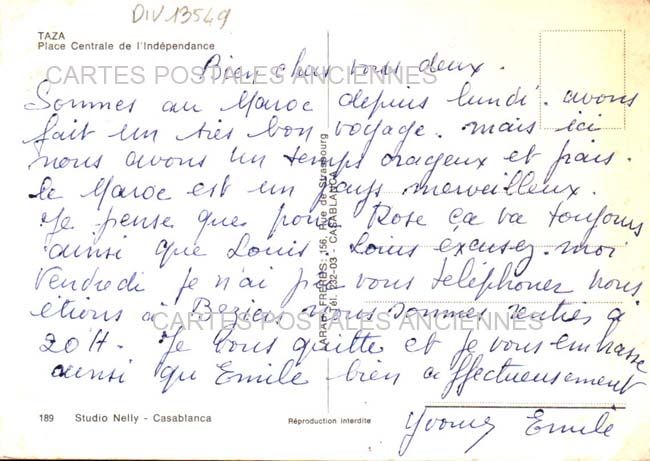 DIV13549
TAZA
Place Centrale de l'Indépendance
CARTES POSTALES ANCIENNES
Bien chers vous deux.
Sommes au Maroc depuis lundi. avons
fait un très bon voyage. mais ici
nous avons un temps orageux et frais.
le Maroc est un pays merveilleux.
Je pense que pour Rose ça va toujours
ainsi que Louis. Louis éxcusez. moi
Vendredi je n'ai pas vous téléphoner nous
etions à Beziers nous sommes rentrés à
CARTES POSTALES ANCIENNES
20H. Je vous quitte et je vous embrasse
ainsi qu'Emile bien affectueusement
Yvonne Emile
FRERES : 156, Rue de Strasbourg
Tél. 232-03 - CASABLANCA
189 Studio Nelly - Casablanca
Réproduction interdite